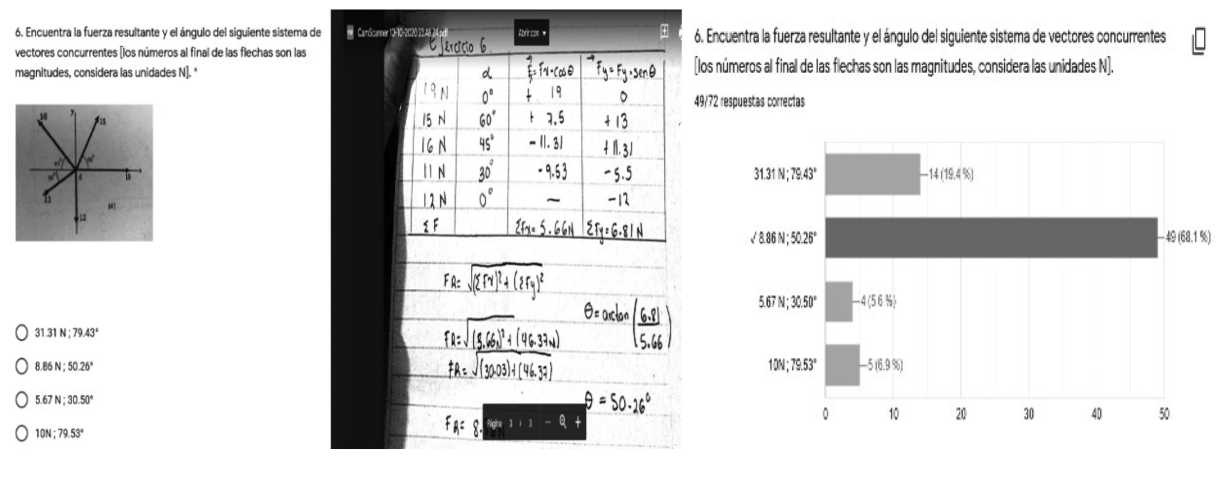 6. Encuentra la fuerza resultante y el ángulo del siguiente sistema de
vectores concurrentes [los números al final de las flechas son las
magnitudes, considera las unidades N]. *
16
y
15
45°
60°
30°
19
11
12
(a)
31.31 N ; 79.43°
8.86 N ; 50.26°
5.67 N ; 30.50°
10N ; 79.53°
CamScanner 10-10-2020 23.46.24.pdf
Abrir con
Ejercicio 6.
α Fx=Fx·cosθ Fy=Fy·senθ
19 N 0° + 19 0
15 N 60° + 7.5 +13
16 N 45° -11.31 +11.31
11 N 30° -9.53 -5.5
12 N 0° — -12
ΣF ΣFx= 5.66N ΣFy=6.81N
FR= √(ΣFx)²+(ΣFy)²
θ= arctan (6.81/5.66)
FR= √(5.66)²+(46.37N)
FR= √(30.03)+(46.37)
θ = 50.26°
FR= 8.
Página 3 / 3 − +
6. Encuentra la fuerza resultante y el ángulo del siguiente sistema de vectores concurrentes
[los números al final de las flechas son las magnitudes, considera las unidades N].
49/72 respuestas correctas
31.31 N ; 79.43° 14 (19.4 %)
✓ 8.86 N ; 50.26° 49 (68.1 %)
5.67 N ; 30.50° 4 (5.6 %)
10N ; 79.53° 5 (6.9 %)
0 10 20 30 40 50